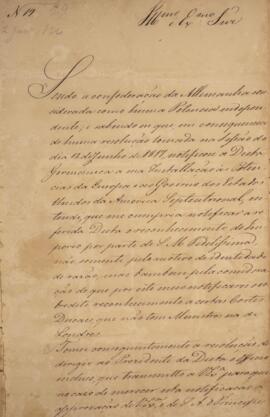 N 19
Illmo e Exmo Snr
Sendo a confederação da Allemanha con
siderada como huma Potencia indepen
dente, e sabendo eu que, em consequencia
de huma resolução tomada na Sessão do
dia 12 de Junho de 1817, notificou a Dieta
Germanica a sua installação ás Poten
cias da Europa e ao Governo dos Estados
Unidos da America Septentrional, en
tendi, que me cumpria notificar a re
ferida Dieta o reconhecimento do Im
perio por parte de S. M. Fidelissima,
não somente pelo motivo de identidade
de razão, mas tambem pela considera
ção de que por este meio notificarei o so
bredito reconhecimento a certas Cortes
Ducaes, que não tem Ministros na de
Londres.
Tomei consequintemente a resolução de
dirigir ao Presidente da Dieta o officio
incluso, que transmitto a V. Exa. para que
no caso de merecer esta notificação a
approvação de V. Exa. e de S. A. o Principe